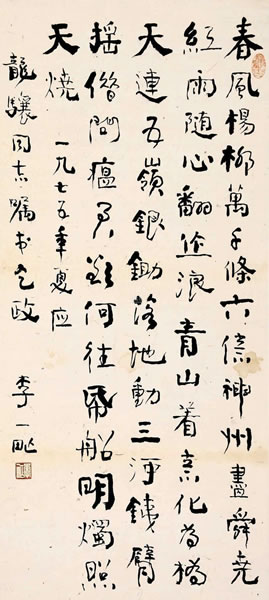 春風楊柳萬千條六億神州盡舜堯
紅雨随心翻作浪青山着意化為橋
天連五嶺銀鋤落地動三河鐵臂
摇借問瘟君欲何往帋船明燭照
天燒 一九七五年夏应
龍驤同志嘱书之政
李一氓